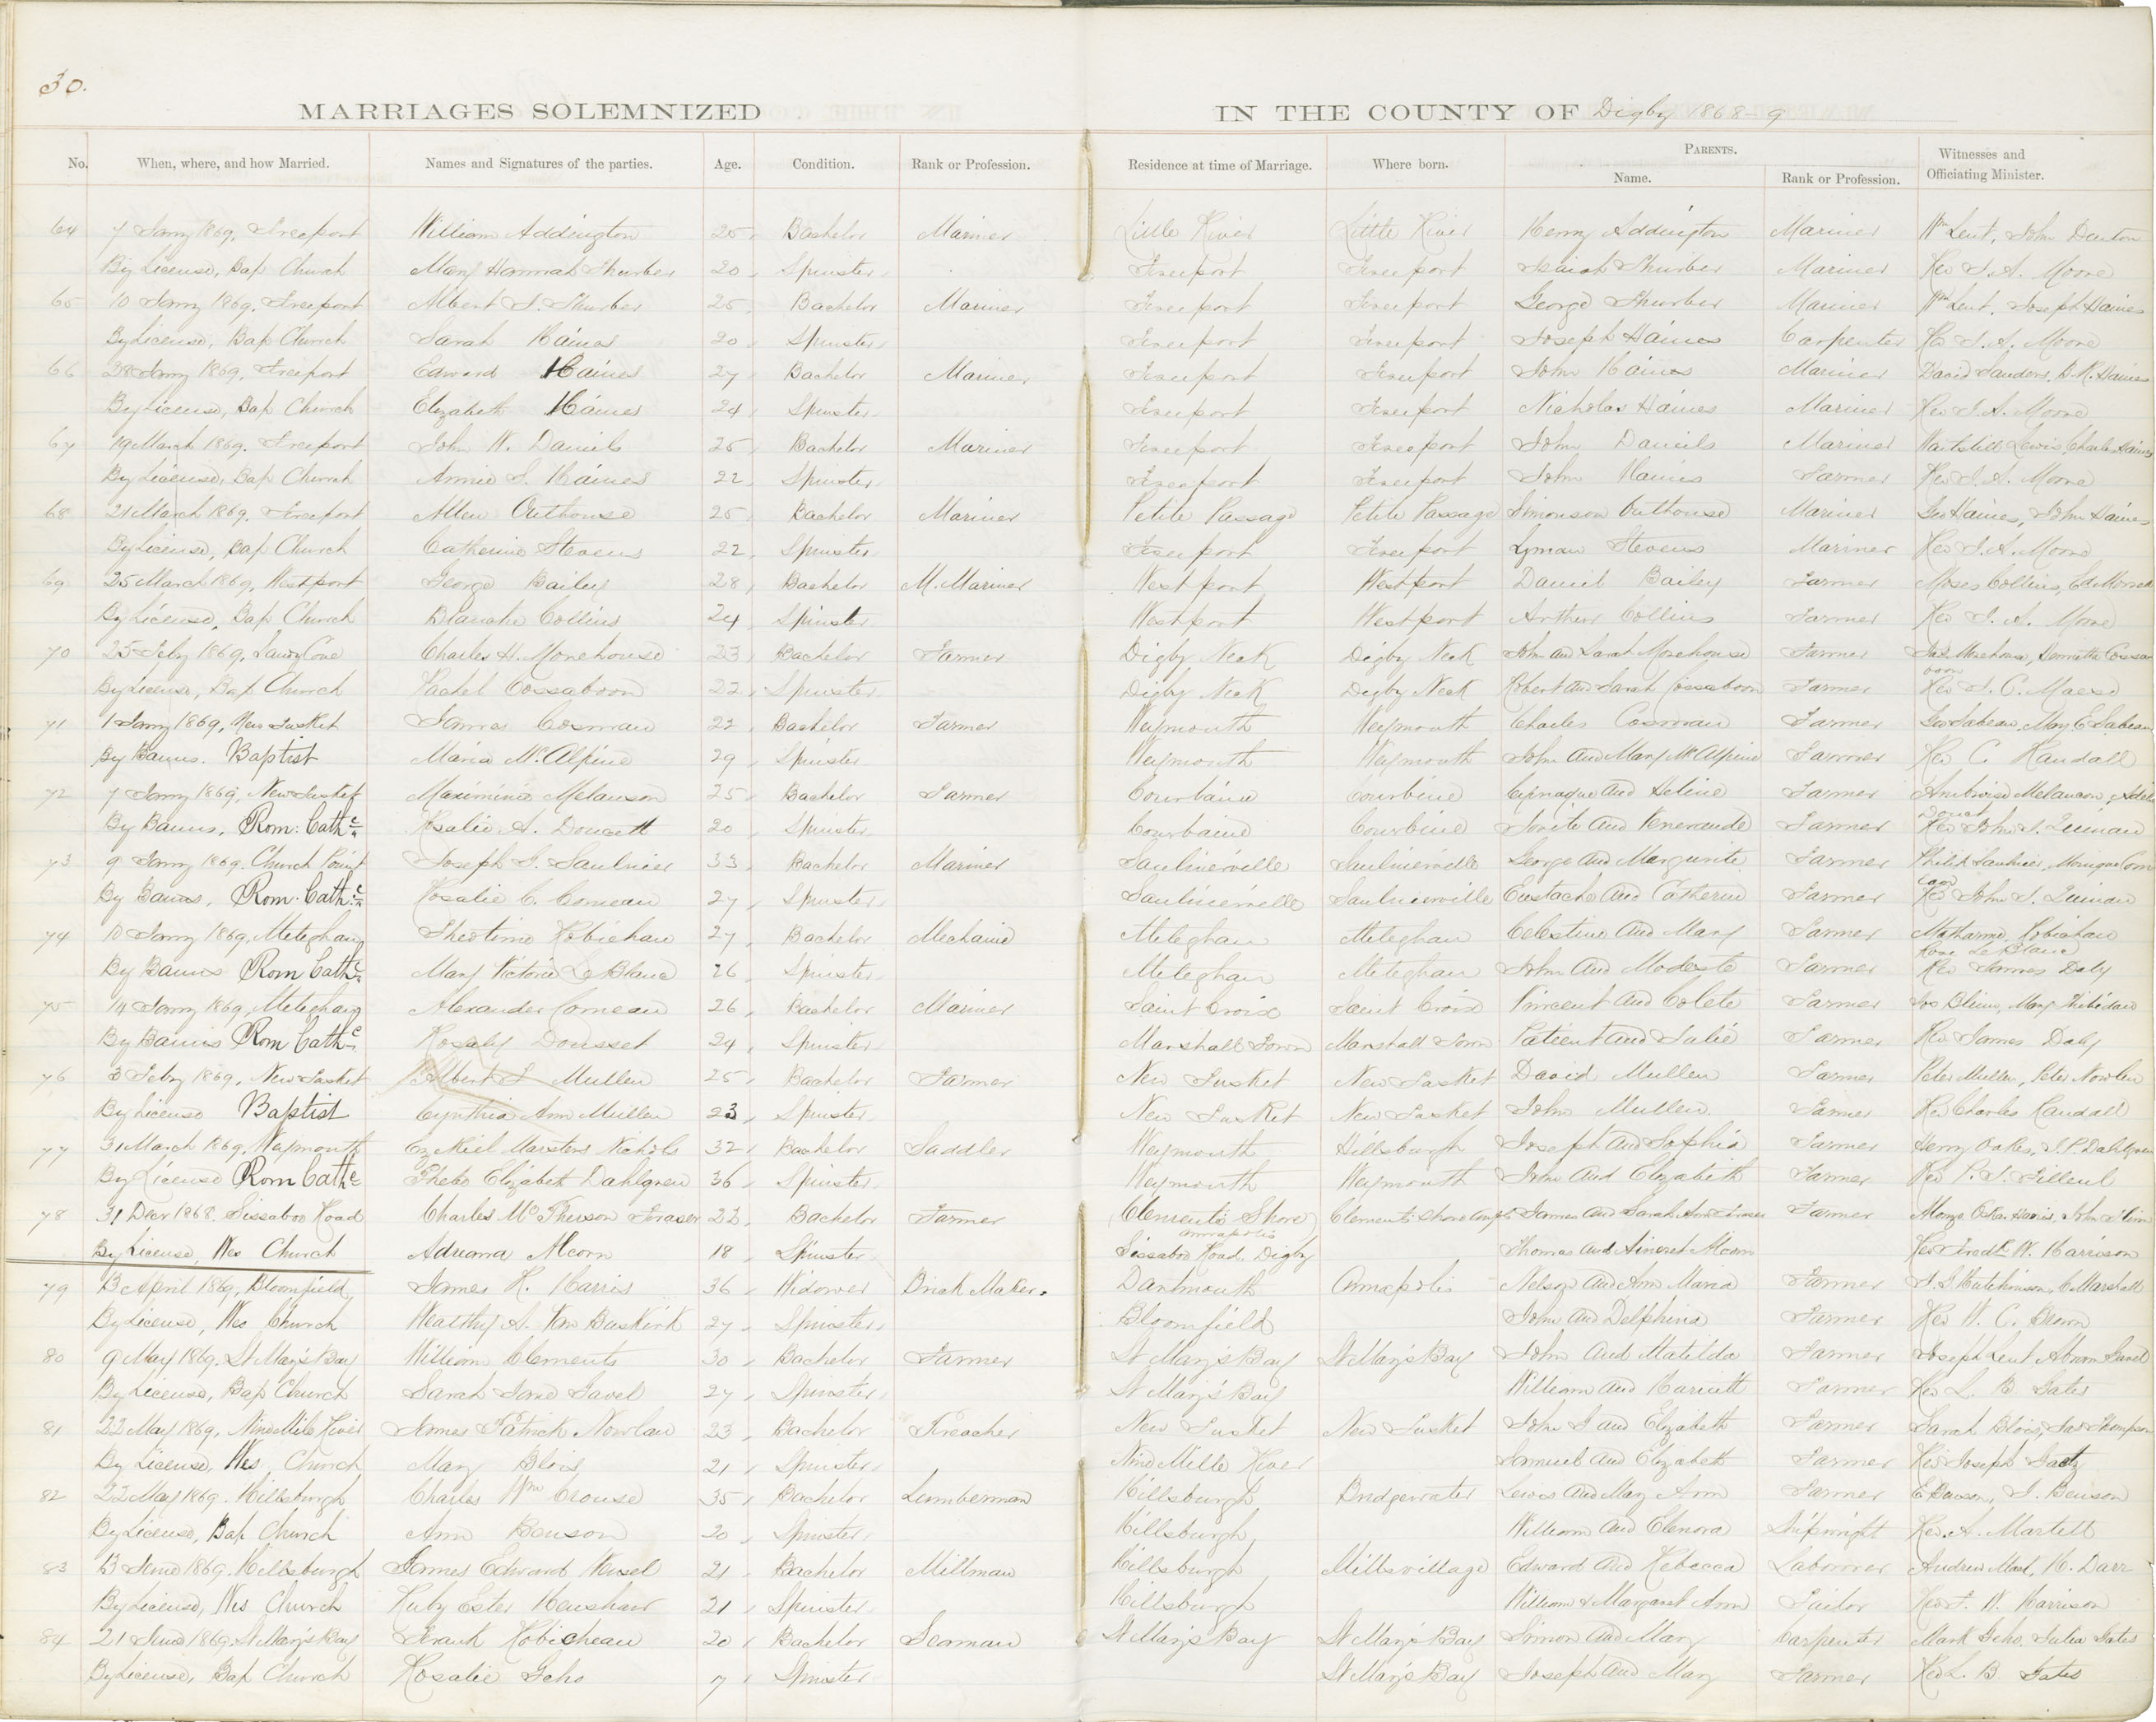 30.
MARRIAGES SOLEMNIZED IN THE COUNTY OF Digby 1868-9
No. When, where, and how Married. Names and Signatures of the parties. Age. Condition. Rank or Profession. Residence at time of Marriage. Where born. PARENTS. Name. Rank or Profession. Witnesses and Officiating Minister.
64 7 Jany 1869, Freeport William Addington 25 Bachelor Mariner Little River Little River Henry Addington Mariner Wm Lent, John Denton
By License, Bap Church Mary Hannah Thurber 20 Spinster Freeport Freeport Isaiah Thurber Mariner Rev J. A. Moore
65 10 Jany 1869, Freeport Albert S. Thurber 25 Bachelor Mariner Freeport Freeport George Thurber Mariner Wm Lent, Joseph Haines
By License, Bap Church Sarah Haines 20 Spinster Freeport Freeport Joseph Haines Carpenter Rev J. A. Moore
66 28 Jany 1869, Freeport Edward Haines 27 Bachelor Mariner Freeport Freeport John Haines Mariner David Sanders, B. H. Haines
By License, Bap Church Elizabeth Haines 24 Spinster Freeport Freeport Nicholas Haines Mariner Rev J. A. Moore
67 19 March 1869, Freeport John W. Daniels 25 Bachelor Mariner Freeport Freeport John Daniels Mariner Waitstill Lewis, Charles Haines
By License, Bap Church Annie S. Haines 22 Spinster Freeport Freeport John Haines Farmer Rev J. A. Moore
68 21 March 1869, Freeport Allen Outhouse 25 Bachelor Mariner Petite Passage Petite Passage Simonson Outhouse Mariner Geo Haines, John Haines
By License, Bap Church Catherine Stevens 22 Spinster Freeport Freeport Lyman Stevens Mariner Rev J. A. Moore
69 25 March 1869, Westport George Bailey 28 Bachelor M. Mariner Westport Westport Daniel Bailey Farmer Moses Collins, Ed Morrell
By License, Bap Church Blanche Collins 24 Spinster Westport Westport Arthur Collins Farmer Rev J. A. Moore
70 25 Feby 1869, Sandy Cove Charles H. Morehouse 23 Bachelor Farmer Digby Neck Digby Neck John and Sarah Morehouse Farmer Morehouse, Henrietta Cossa
boon
By License, Bap Church Rachel Cossaboon 22 Spinster Digby Neck Digby Neck Robert and Sarah Cossaboon Farmer Rev J. C. Morse
71 1 Jany 1869, New Tusket James Cosman 22 Bachelor Farmer Weymouth Weymouth Charles Cosman Farmer Geo Sabean, Mary E Sabean
By Banns. Baptist Maria McAlpine 29 Spinster Weymouth Weymouth John and Mary McAlpine Farmer Rev C Randall
72 7 Jany 1869, New Tusket Maximine Melanson 25 Bachelor Farmer Courbine Courbine and Heline Farmer Ambroise Melancon, Adele
Doucet
By Banns, Rom: Cathc Rosalie A. Doucett 20 Spinster Courbaine Courbine and Venerande Farmer Rev John J. Quinan
73 9 Jany 1869. Church Point Joseph G. Saulnier 33 Bachelor Mariner Saulnierville Saulnierville George and Marguerite Farmer Philip Saulnier, Monique Com
eau
By Banns, Rom. Cathc Rosalie C. Comeau 27 Spinster Saulnierville Saulnierville Eustache and Catherine Farmer Rev John J. Quinan
74 10 Jany 1869, Meteghan Theotime Robichau 27 Bachelor Mechanic Meteghan Meteghan Celestine and Mary Farmer Robichau
Rose LeBlanc
By Banns Rom Cathc Mary Victoria LeBlanc 26 Spinster Meteghan Meteghan John and Modeste Farmer Rev James Daly
75 14 Jany 1869, Meteghan Alexander Comeau 26 Bachelor Mariner Saint Croix Saint Croix Vincent and Colete Farmer Blinn, Mary Thibideau
By Banns Rom Cathc Rosaly Dousset 24 Spinster Marshall Town Marshall Town Patient and Julie Farmer Rev James Daly
76 3 Feby 1869, New Tusket Albert S. Mullen 25 Bachelor Farmer New Tusket New Tusket David Mullen Farmer Peter Mullen, Peter Nowlen
By License Baptist Cynthia Ann Mullen 23 Spinster New Tusket New Tusket John Mullen Farmer Rev Charles Randall
77 31 March 1869, Weymouth Ezekiel Marsters Nichols 32 Bachelor Saddler Weymouth Hillsburgh Joseph and Sophia Farmer Henry Oakes, J. P. Dahlgren
By License Rom Cathc Phebe Elizabeth Dahlgren 36 Spinster Weymouth Weymouth John and Elizabeth Farmer Rev P. J. Filleul
78 31 Decr 1868, Sissaboo Road Charles McPherson Fraser 22 Bachelor Farmer Clements Shore Clements Shore James and Sarah Ann Fraser Farmer
Annapolis
By License, Wes Church Adriana Alcorn 18 Spinster Sissaboo Road, Digby Thomas and Alcorn Rev Fredk W. Harrison
79 13 April 1869, Bloomfield James H. Harris 36 Widower Brick Maker. Dartmouth Annapolis Nelson and Ann Maria Farmer J. G. Hutchinson, C. Marshall
By License, Wes Church Wealthy A. Van Buskirk 27 Spinster Bloomfield John and Delphina Farmer Rev W. C. Brown
80 9 May 1869. St Mary's Bay William Clements 30 Bachelor Farmer St Mary's Bay St Mary's Bay John and Matilda Farmer Joseph Lent, Abram Gavel
By License, Bap Church Sarah Jane Gavel 27 Spinster St Mary's Bay William and Harriett Farmer Rev L. B. Gates
81 22 May 1869, Nine Mile River James Patrick Nowlan 23 Bachelor Preacher New Tusket New Tusket John G and Elizabeth Farmer Sarah Blois, Jas Thompson
By License, Wes Church Mary Blois 21 Spinster Nine Mile River Samuel and Elizabeth Farmer Rev Joseph Gaetz
82 22 May 1869. Hillsburgh Charles Wm Crouse 35 Bachelor Lumberman Hillsburgh Bridgewater Lewis and Mary Ann Farmer E Benson, J. Benson
By License, Bap Church Ann Benson 20 Spinster Hillsburgh William and Elenora Shipwright Rev. A. Martell
83 13 June 1869. Hillsburgh James Edward Wensel 21 Bachelor Millman Hillsburgh Millsvillage Edward and Rebecca Labourer Andrew Mack, H. Darr
By License, Wes Church Ruby Ester Henshaw 21 Spinster Hillsburgh William & Margaret Ann Tailor Rev F. W. Harrison
84 21 June 1869, St Mary's Bay Frank Robicheau 20 Bachelor Seaman St Mary's Bay St Mary's Bay Simon and Mary Carpenter Mark Geho, Julia Gates
By License, Bap Church Rosalie Geho Spinster St Mary's Bay Joseph and Mary Farmer Rev L. B. Gates